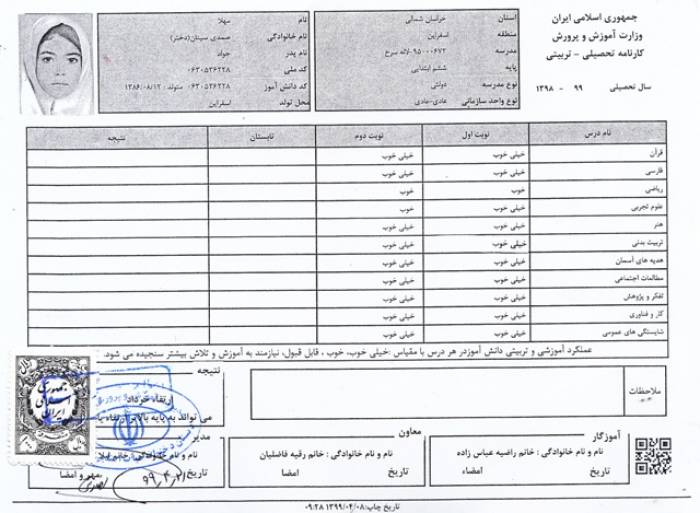 جمهوری اسلامی ایران
وزارت آموزش و پرورش
کارنامه تحصیلی - تربیتی
سال تحصیلی ۹۹ - ۱۳۹۸
استان خراسان شمالی
منطقه اسفراین
مدرسه ۹۵۰۰۰۶۷۲-لاله سرخ
پایه ششم ابتدایی
نوع مدرسه دولتی
نوع واحد سازمانی عادی-عادی
نام سهلا
نام خانوادگی صمدی سینان(دختر)
نام پدر جواد
کد ملی ۰۶۳۰۵۳۶۲۲۸
کد دانش آموز ۰۶۳۰۵۳۶۲۲۸ متولد : ۱۳۸۶/۰۸/۱۲
محل تولد اسفراین
نام درس نوبت اول نوبت دوم تابستان نتیجه
قرآن خیلی خوب خیلی خوب
فارسی خیلی خوب خیلی خوب
ریاضی خوب خوب
علوم تجربی خیلی خوب خوب
هنر خیلی خوب خیلی خوب
تربیت بدنی خیلی خوب خیلی خوب
هدیه های آسمان خیلی خوب خیلی خوب
مطالعات اجتماعی خیلی خوب خیلی خوب
تفکر و پژوهش خیلی خوب خیلی خوب
کار و فناوری خیلی خوب خیلی خوب
شایستگی های عمومی خیلی خوب خیلی خوب
عملکرد آموزشی و تربیتی دانش آموزدر هر درس با مقیاس :خیلی خوب، خوب ، قابل قبول، نیازمند به آموزش و تلاش بیشتر سنجیده می شود.
ملاحظات
نتیجه
ارتقاء خرداد
می تواند به پایه بالاتر ارتقاء
آموزگار
نام و نام خانوادگی : خانم راضیه عباس زاده
تاریخ امضاء
معاون
نام و نام خانوادگی : خانم رقیه فاضلیان
تاریخ امضاء
مدیر
نام و نام خانوادگی : خانم
تاریخ مهر و امضاء
جمهوری
اسلامی
ایران
تاریخ چاپ:۱۳۹۹/۰۴/۰۸ ۰۹:۲۸